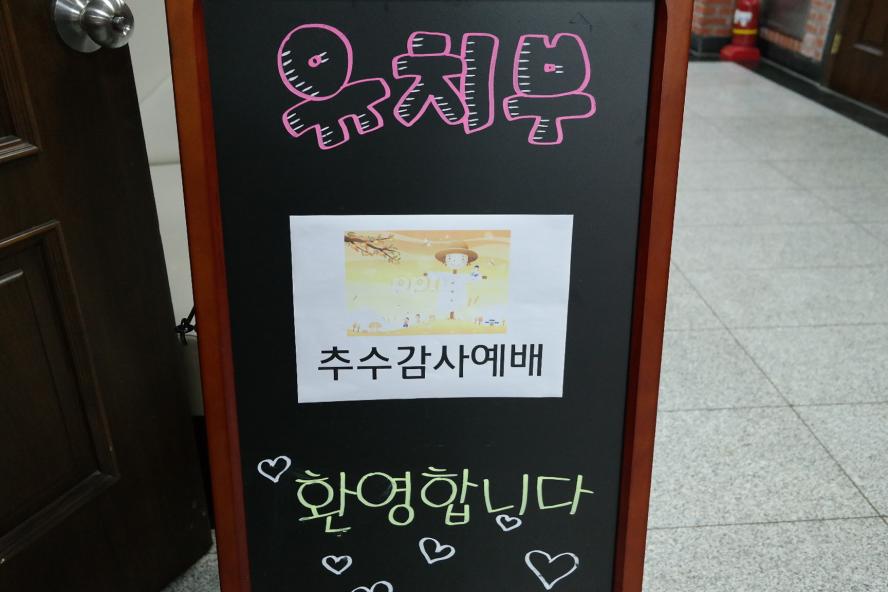 유치부
추수감사예배
환영합니다